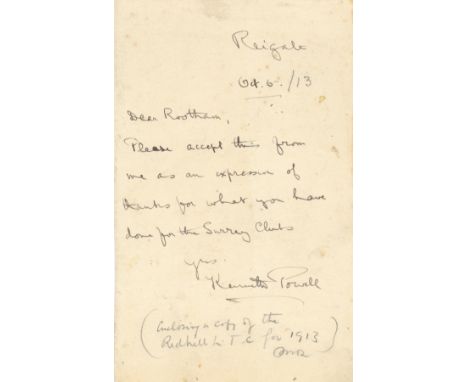 Reigate
Oct. 6. /13
Dear Rootham,
Please accept this from
me as an expression of
thanks for what you have
done for the Surrey Clubs
yrs.
Kenneth Powell
(enclosing a copy of the
Redhill L. T. C for 1913)